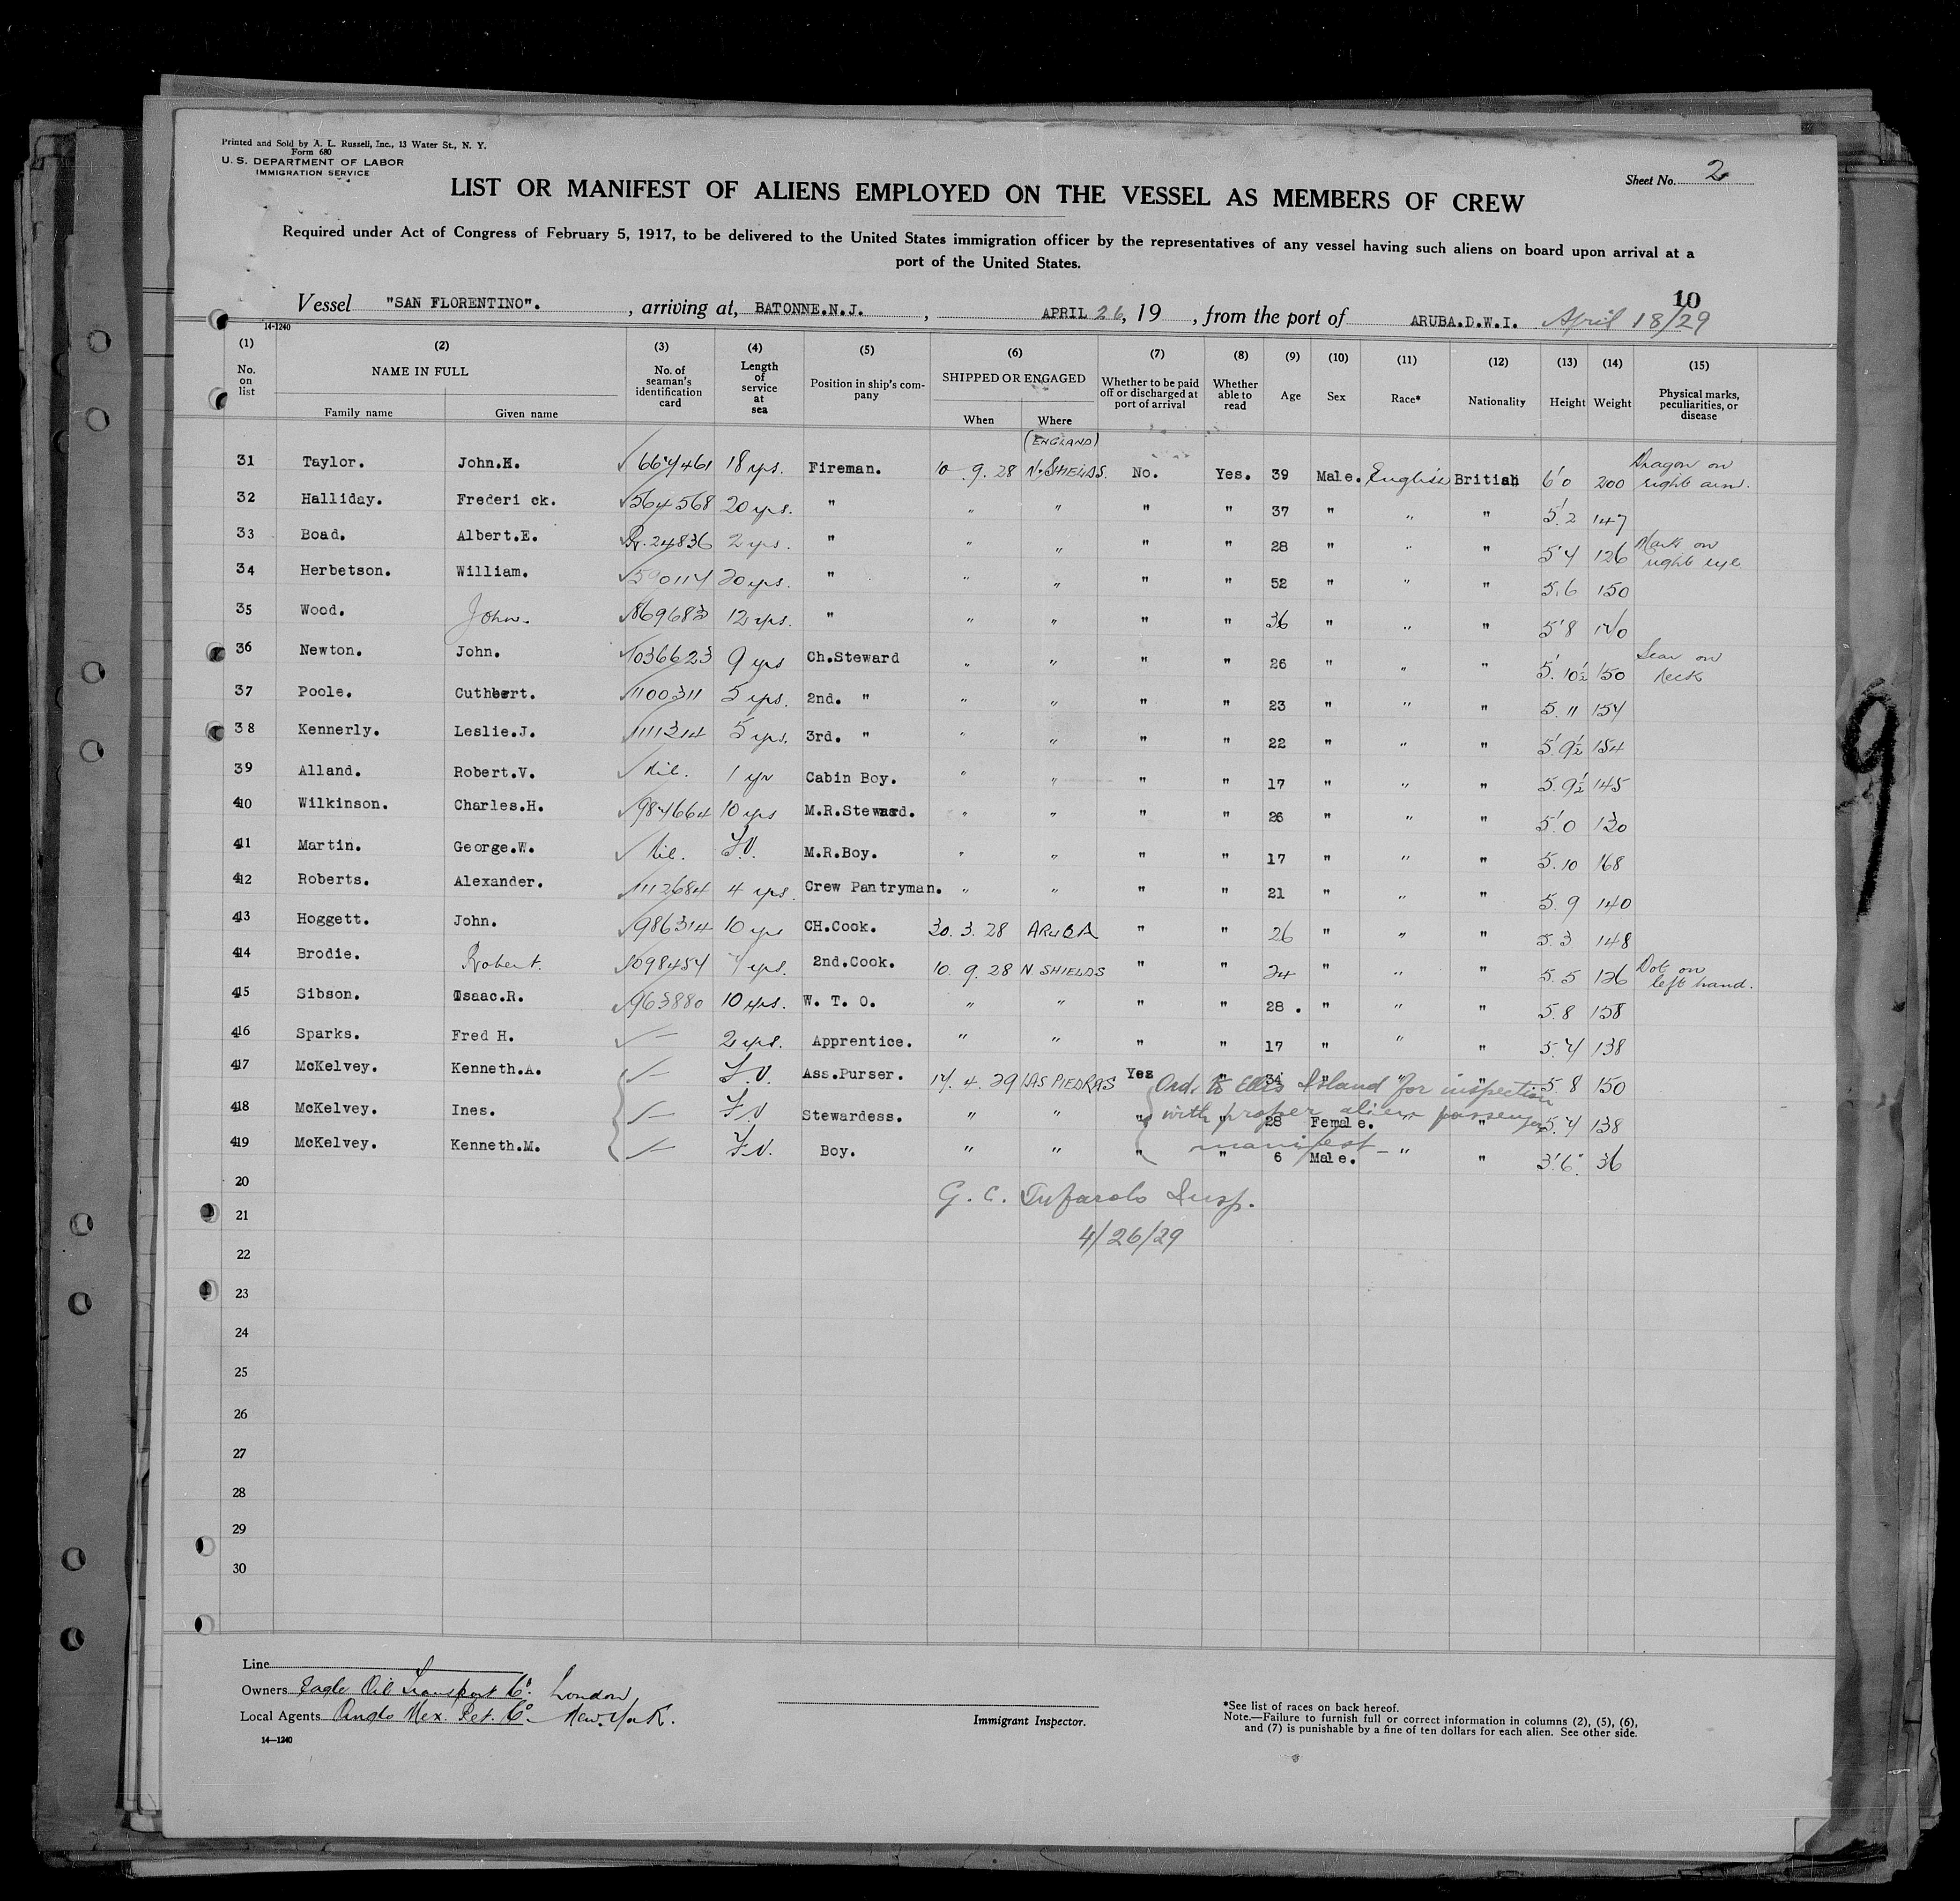 Printed and Sold by A. L. Russell, Inc., 13 Water St., N. Y.
Form 680
U. S. DEPARTMENT OF LABOR
IMMIGRATION SERVICE
Sheet No. 2
LIST OR MANIFEST OF ALIENS EMPLOYED ON THE VESSEL AS MEMBERS OF CREW
Required under Act of Congress of February 5, 1917, to be delivered to the United States immigration officer by the representatives of any vessel having such aliens on board upon arrival at a
port of the United States.
10
Vessel "SAN FLORENTINO". , arriving at, BATONNE.N.J. , APRIL 26, 19 , from the port of ARUBA.D.W.I. April 18/29
14-1240
(1) (2) (3) (4) (5) (6) (7) (8) (9) (10) (11) (12) (13) (14) (15)
No. on list NAME IN FULL Family name Given name No. of seaman's identification card Length of service at sea Position in ship's company SHIPPED OR ENGAGED When Where Whether to be paid off or discharged at port of arrival Whether able to read Age Sex Race* Nationality Height Weight Physical marks, peculiarities, or disease
(ENGLAND)
31 Taylor. John.H. 10 9. 28 N. SHIELDS. 18 yrs. Fireman. No. Yes. 39 Male. English British 6'0 200 Dragon on right arm.
32 Halliday. Frederi ck. 564568 20 yrs. " " " " " 37 " " " 5'2 147
33 Boad. Albert.E. 24836 2 yrs. " " " " " 28 " " " 5'4 126 Mark on right eye
34 Herbetson. William. 590114 20 yrs. " " " " " 52 " " " 5.6 150
35 Wood. John. 869683 12 yrs. " " " " " 36 " " " 5'8 140
36 Newton. John. 1036623 9 yrs Ch.Steward " " " " 26 " " " 5'.10½ 150 Scar on neck
37 Poole. Cuthbert. 1100311 5 yrs. 2nd. " " " " " 23 " " " 5.11 154
38 Kennerly. Leslie.J. 1111314 5 yrs. 3rd. " " " " " 22 " " " 5'9½ 154
39 Alland. Robert.V. Nil. 1 yr Cabin Boy. " " " " 17 " " " 5.9½ 145
410 Wilkinson. Charles.H. 984664 10 yrs M.R.Steward. " " " " 26 " " " 5'.0 130
411 Martin. George.W. Nil. F.V. M.R.Boy. " " " " 17 " " " 5.10 168
412 Roberts. Alexander. 1112684 4 yrs. Crew Pantryman. " " " " 21 " " " 5.9 140
413 Hoggett. John. 986314 10 yrs CH.Cook. 30. 3. 28 ARUBA " " 26 " " " 5.3 148
414 Brodie. Robert. 1098454 yrs. 2nd.Cook. 10. 9. 28 N. SHIELDS " " 24 " " " 5.5 126 Dot on left hand.
415 Sibson. Isaac.R. 963880 10 yrs. W. T. O. " " " " 28 . " " " 5.8 158
416 Sparks. Fred H. — 2 yrs. Apprentice. " " " " 17 " " " 5.4 138
417 McKelvey. Kenneth.A. — F.V. Ass.Purser. 14. 4. 29 LAS PIEDRAS Yes " 34 " " " 5.8 150
418 McKelvey. Ines. — F.V Stewardess. " " " " 28 Female. " " 5.4 138
419 McKelvey. Kenneth.M. — F.V. Boy. " " " " 6 Male. " " 3'.6". 36
Ord. to Ellis Island for inspection
with proper alien passenger
manifest —
20
G. C. Insp.
21
4/26/29
22
23
24
25
26
27
28
29
30
Line
Owners Eagle Oil Transport Co. London
Local Agents Anglo Mex. Pet. Co. New York.
14—1240
Immigrant Inspector.
*See list of races on back hereof.
Note.—Failure to furnish full or correct information in columns (2), (5), (6),
and (7) is punishable by a fine of ten dollars for each alien. See other side.
9